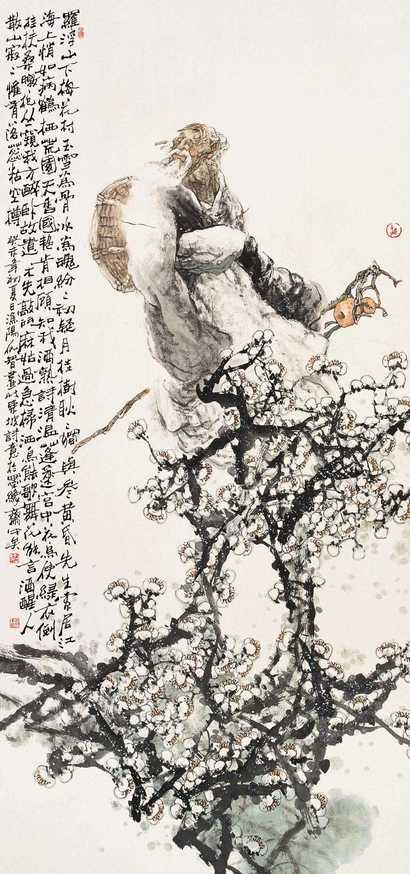 羅浮山下梅花村玉雪為骨冰為魂紛〻初疑月挂樹耿〻獨與參黃昏先生索居江
海上悄如病鶴栖荒園天香國艷肯相顧知我酒熟詩清溫蓬萊宮中花鳥使綠衣倒
挂扶桑暾抱丛窺我方醉卧故遣啄木先敲門麻姑過急掃洒鳥能歌舞花能言酒醒人
散山寂〻惟有落蕊粘空樽 年初夏日